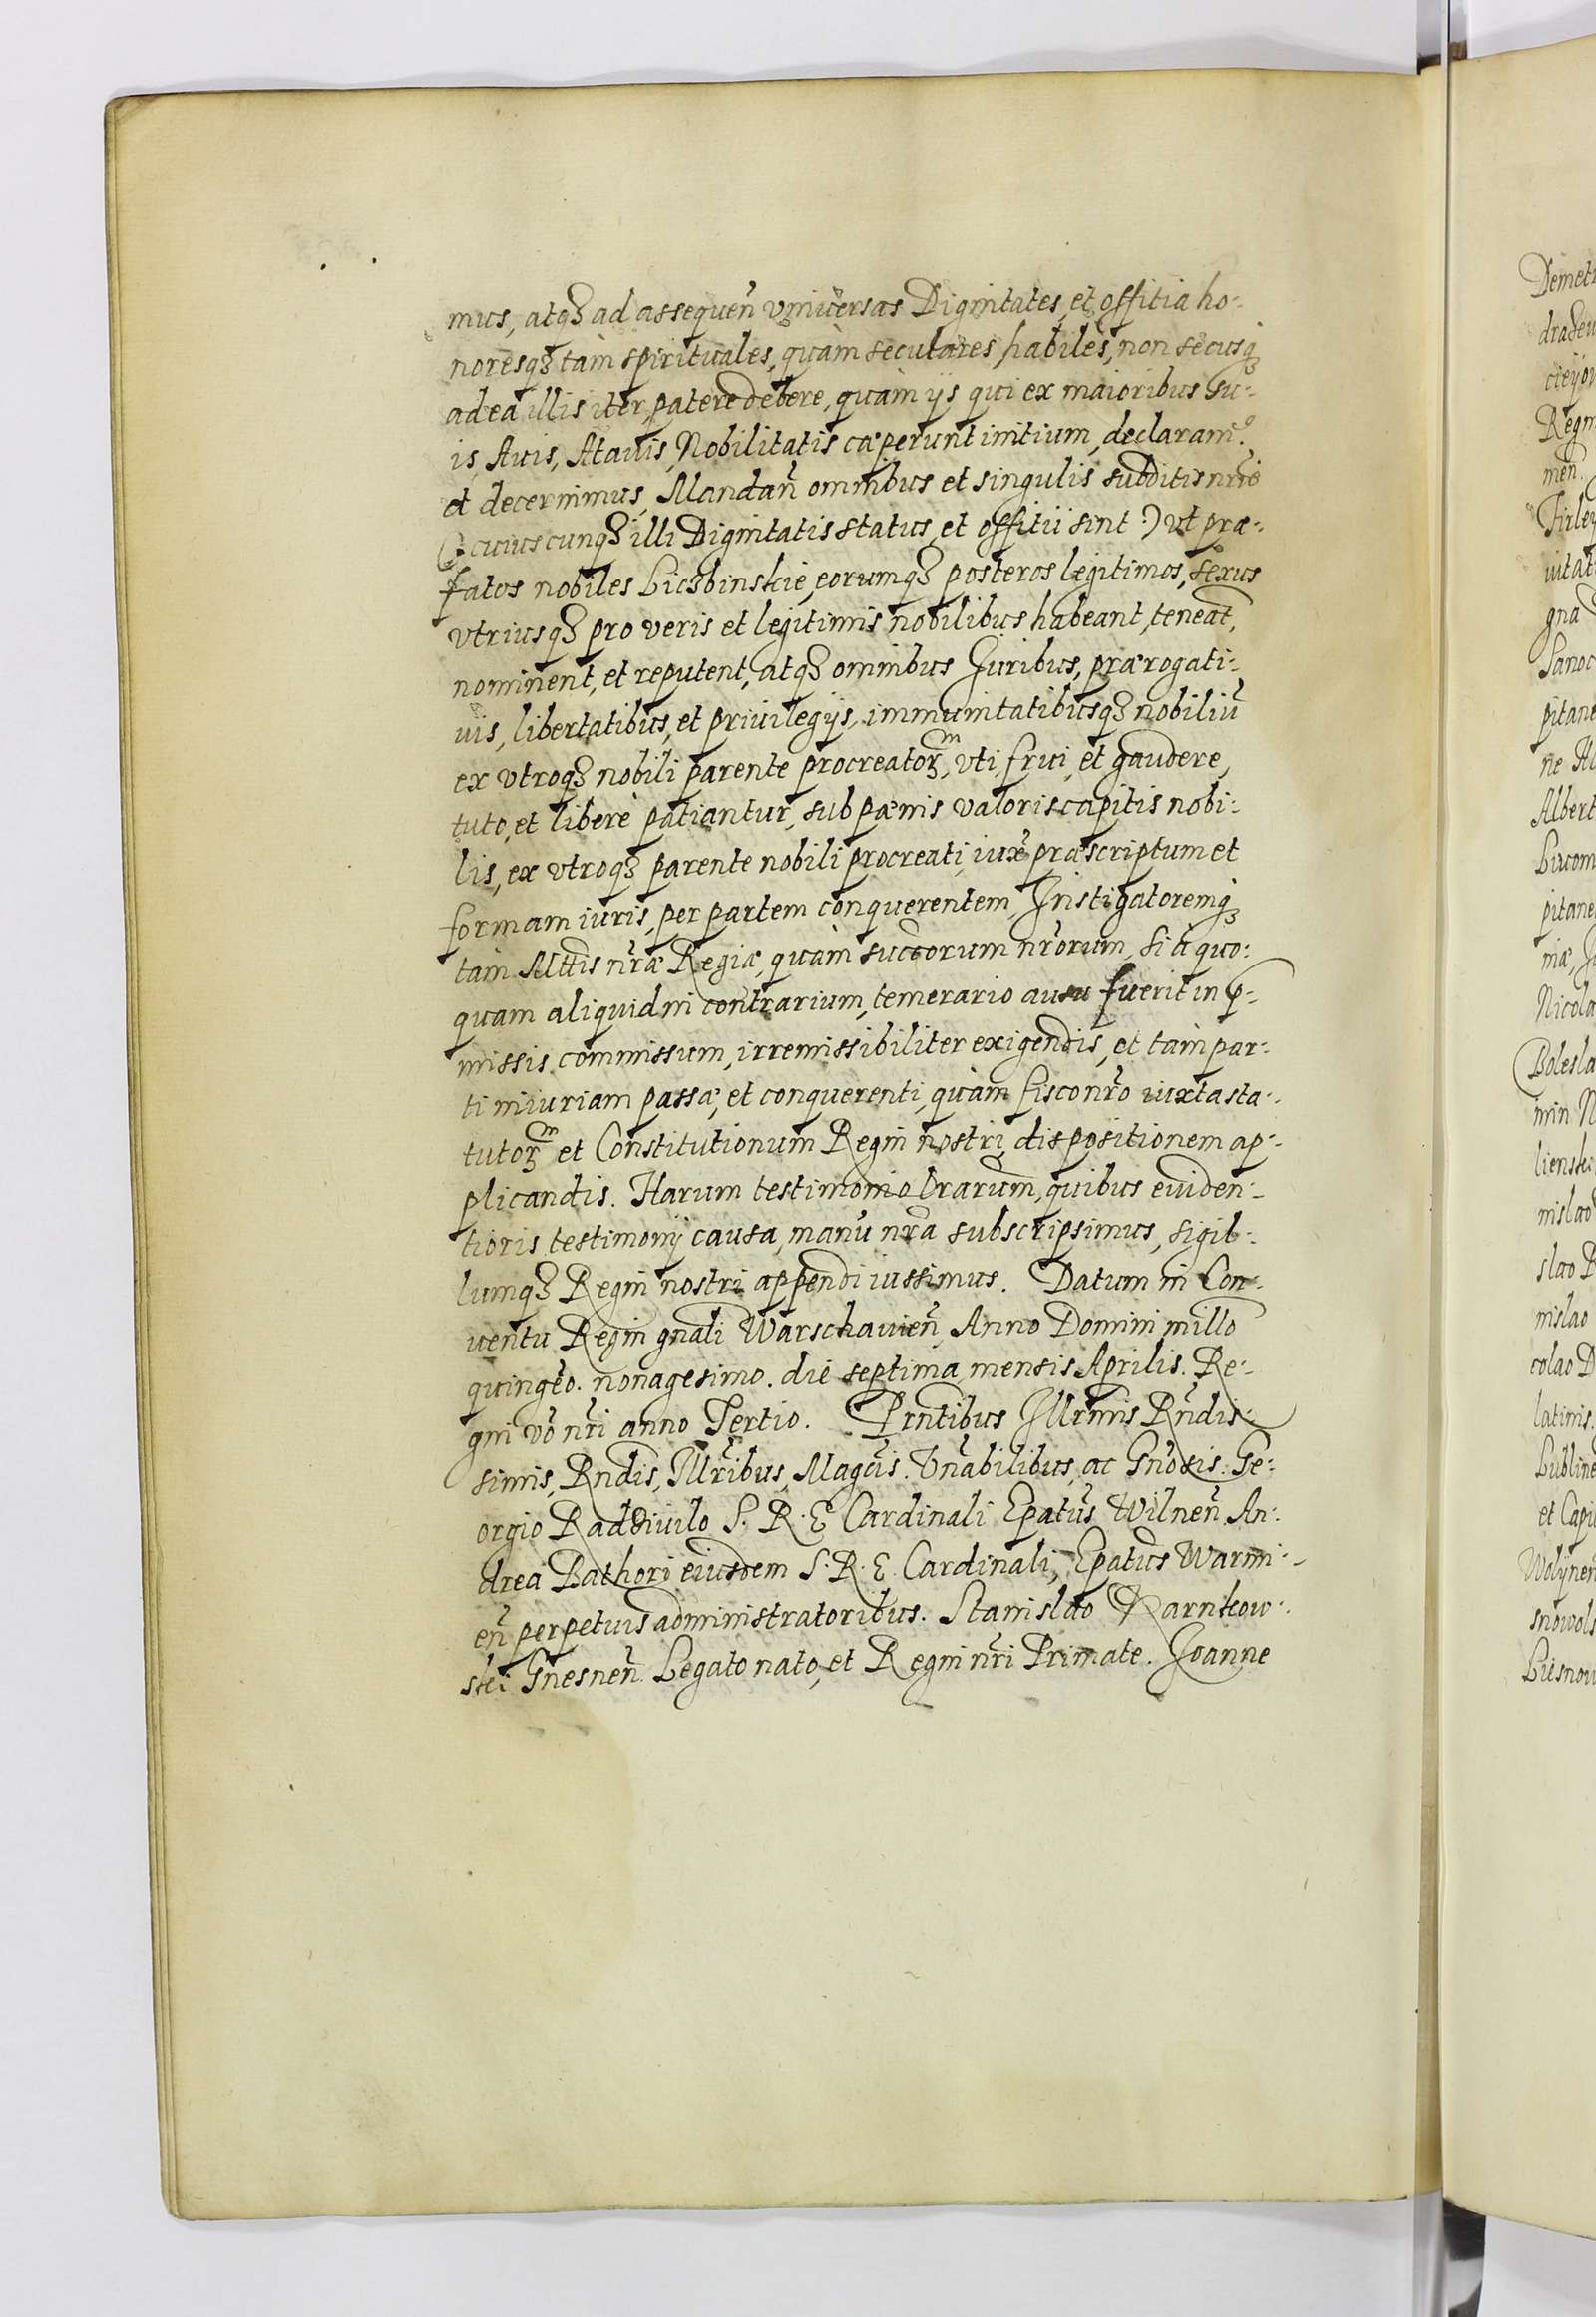 mus, atqꝫ ad assequen̄ vniuersas Dignitates, et offitia ho-
noresqꝫ tàm spirituales, quàm seculares habiles, non secusqꝫ
ad ea illis iter patere debere, quàm ijs qui ex maioribus su-
is, Auis, Atauis, Nobilitatis cæperunt initium, declaram9.
et decernimus, Mandan̄ omnibus et singulis subditis nr̄is
(: cuiuscunqꝫ illi Dignitatis status, et offitii sint :) vt præ-
fatos nobiles Liczbinskie, eorumqꝫ posteros legitimos, sexus
vtriusqꝫ pro veris et legitimis nobilibus habeant, teneāt,
nominent, et reputent, atqꝫ omnibus Juribus, prærogati-
uis, libertatibus, et priuilegijs, immunitatibusqꝫ nobiliū
ex vtroqꝫ nobili parente procreatoꝝm, vti, frui, et gaudere,
tuto, et liberè patiantur, sub pænis valoris capitis nobi-
lis, ex vtroqꝫ parente nobili procreati, iux̄ præscriptum et
formam iuris, per partem conquerentem, Instigatoremqꝫ
tàm Mttis nr̄æ Regiæ, quàm succorum nr̄orum, si à quo-
quam aliquid in contrarium, temerario ausu fuerit in p̄-
missis commissum, irremissibiliter exigendis, et tàm par-
ti iniuriam passæ, et conquerenti, quàm fisco nr̄o iuxta sta-
tutoꝝm et Constitutionum Regni nostri, dispositionem ap-
plicandis. Harum testimonio Lrarum, quibus euiden-
tioris testimonij causa, manū nr̄a subscripsimus, sigil-
lumqꝫ Regni nostri appendi iussimus. Datum in Con-
uentu Regni gnāli Warschauien̄, Anno Domini millō
quingēo. nonagesimo. die septima mensis Aprilis. Re-
gni vō nr̄i anno Tertio. Prn̄tibus Illrmis Rn̄dis-
simis, Rndis, Illr̄ibus, Magcis. Vn̄abilibus, ac Gn̄osis. Ge-
orgio Raddiuilo S. R. E Cardinali Epatūs Wilnen̄. An-
drea Bathori eiusdem S. R. E. Cardinali, Epatus Warmi-
en̄ perpetuis administratoribus. Stanislao Karnkow-
ski Gnesnen̄. Legato nato, et Regni nr̄i Primate. Joanne
Demet
Regn
men̄.
Firley
uitat
gna
Sanoc
pitane
Albert
pitane
Nicola
Bolesla
min N
lienski
nislao
slao B
nislao
colao D
latinis.
Lubline
et Capi
Wolynen
snowols
Liesnow